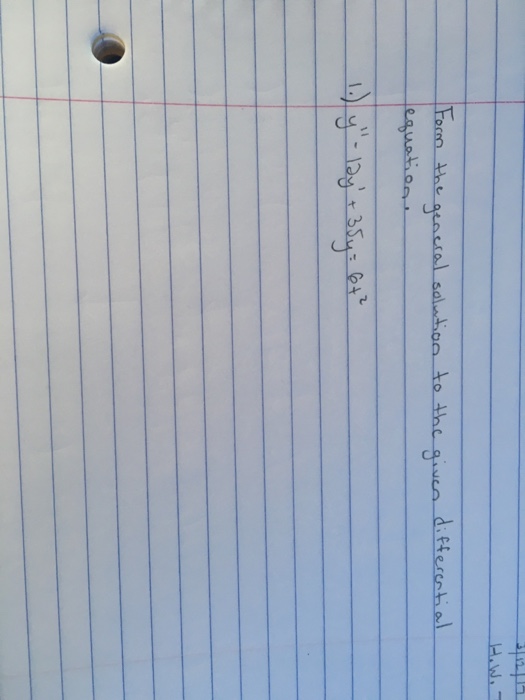 H.W.
Form the general solution to the given differential
equation.
1.) y" - 12y' + 35y = 6t²